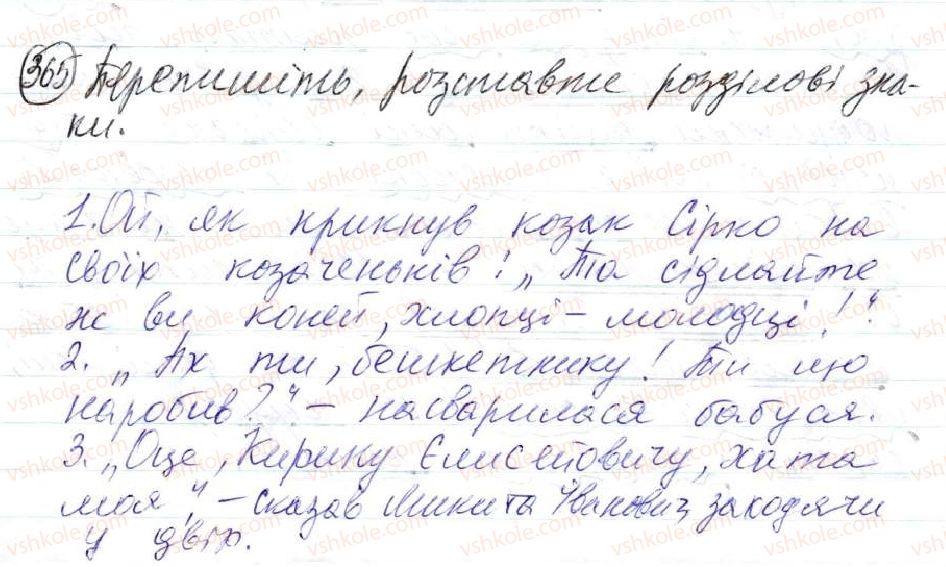 365 Перепишіть, розставте розділові зна-
ки.
1. Ой, як крикнув козак Сірко на
своїх козаченьків: „Та сідлайте
ж ви коней, хлопці – молодці!".
2. „Ах ти, бешкетнику! Ти що
наробив?" – насварилася бабуся.
3. „Оце, Кирику Єлисейовичу, хата
моя", – сказав Микита Іванович, заходячи
у двір.